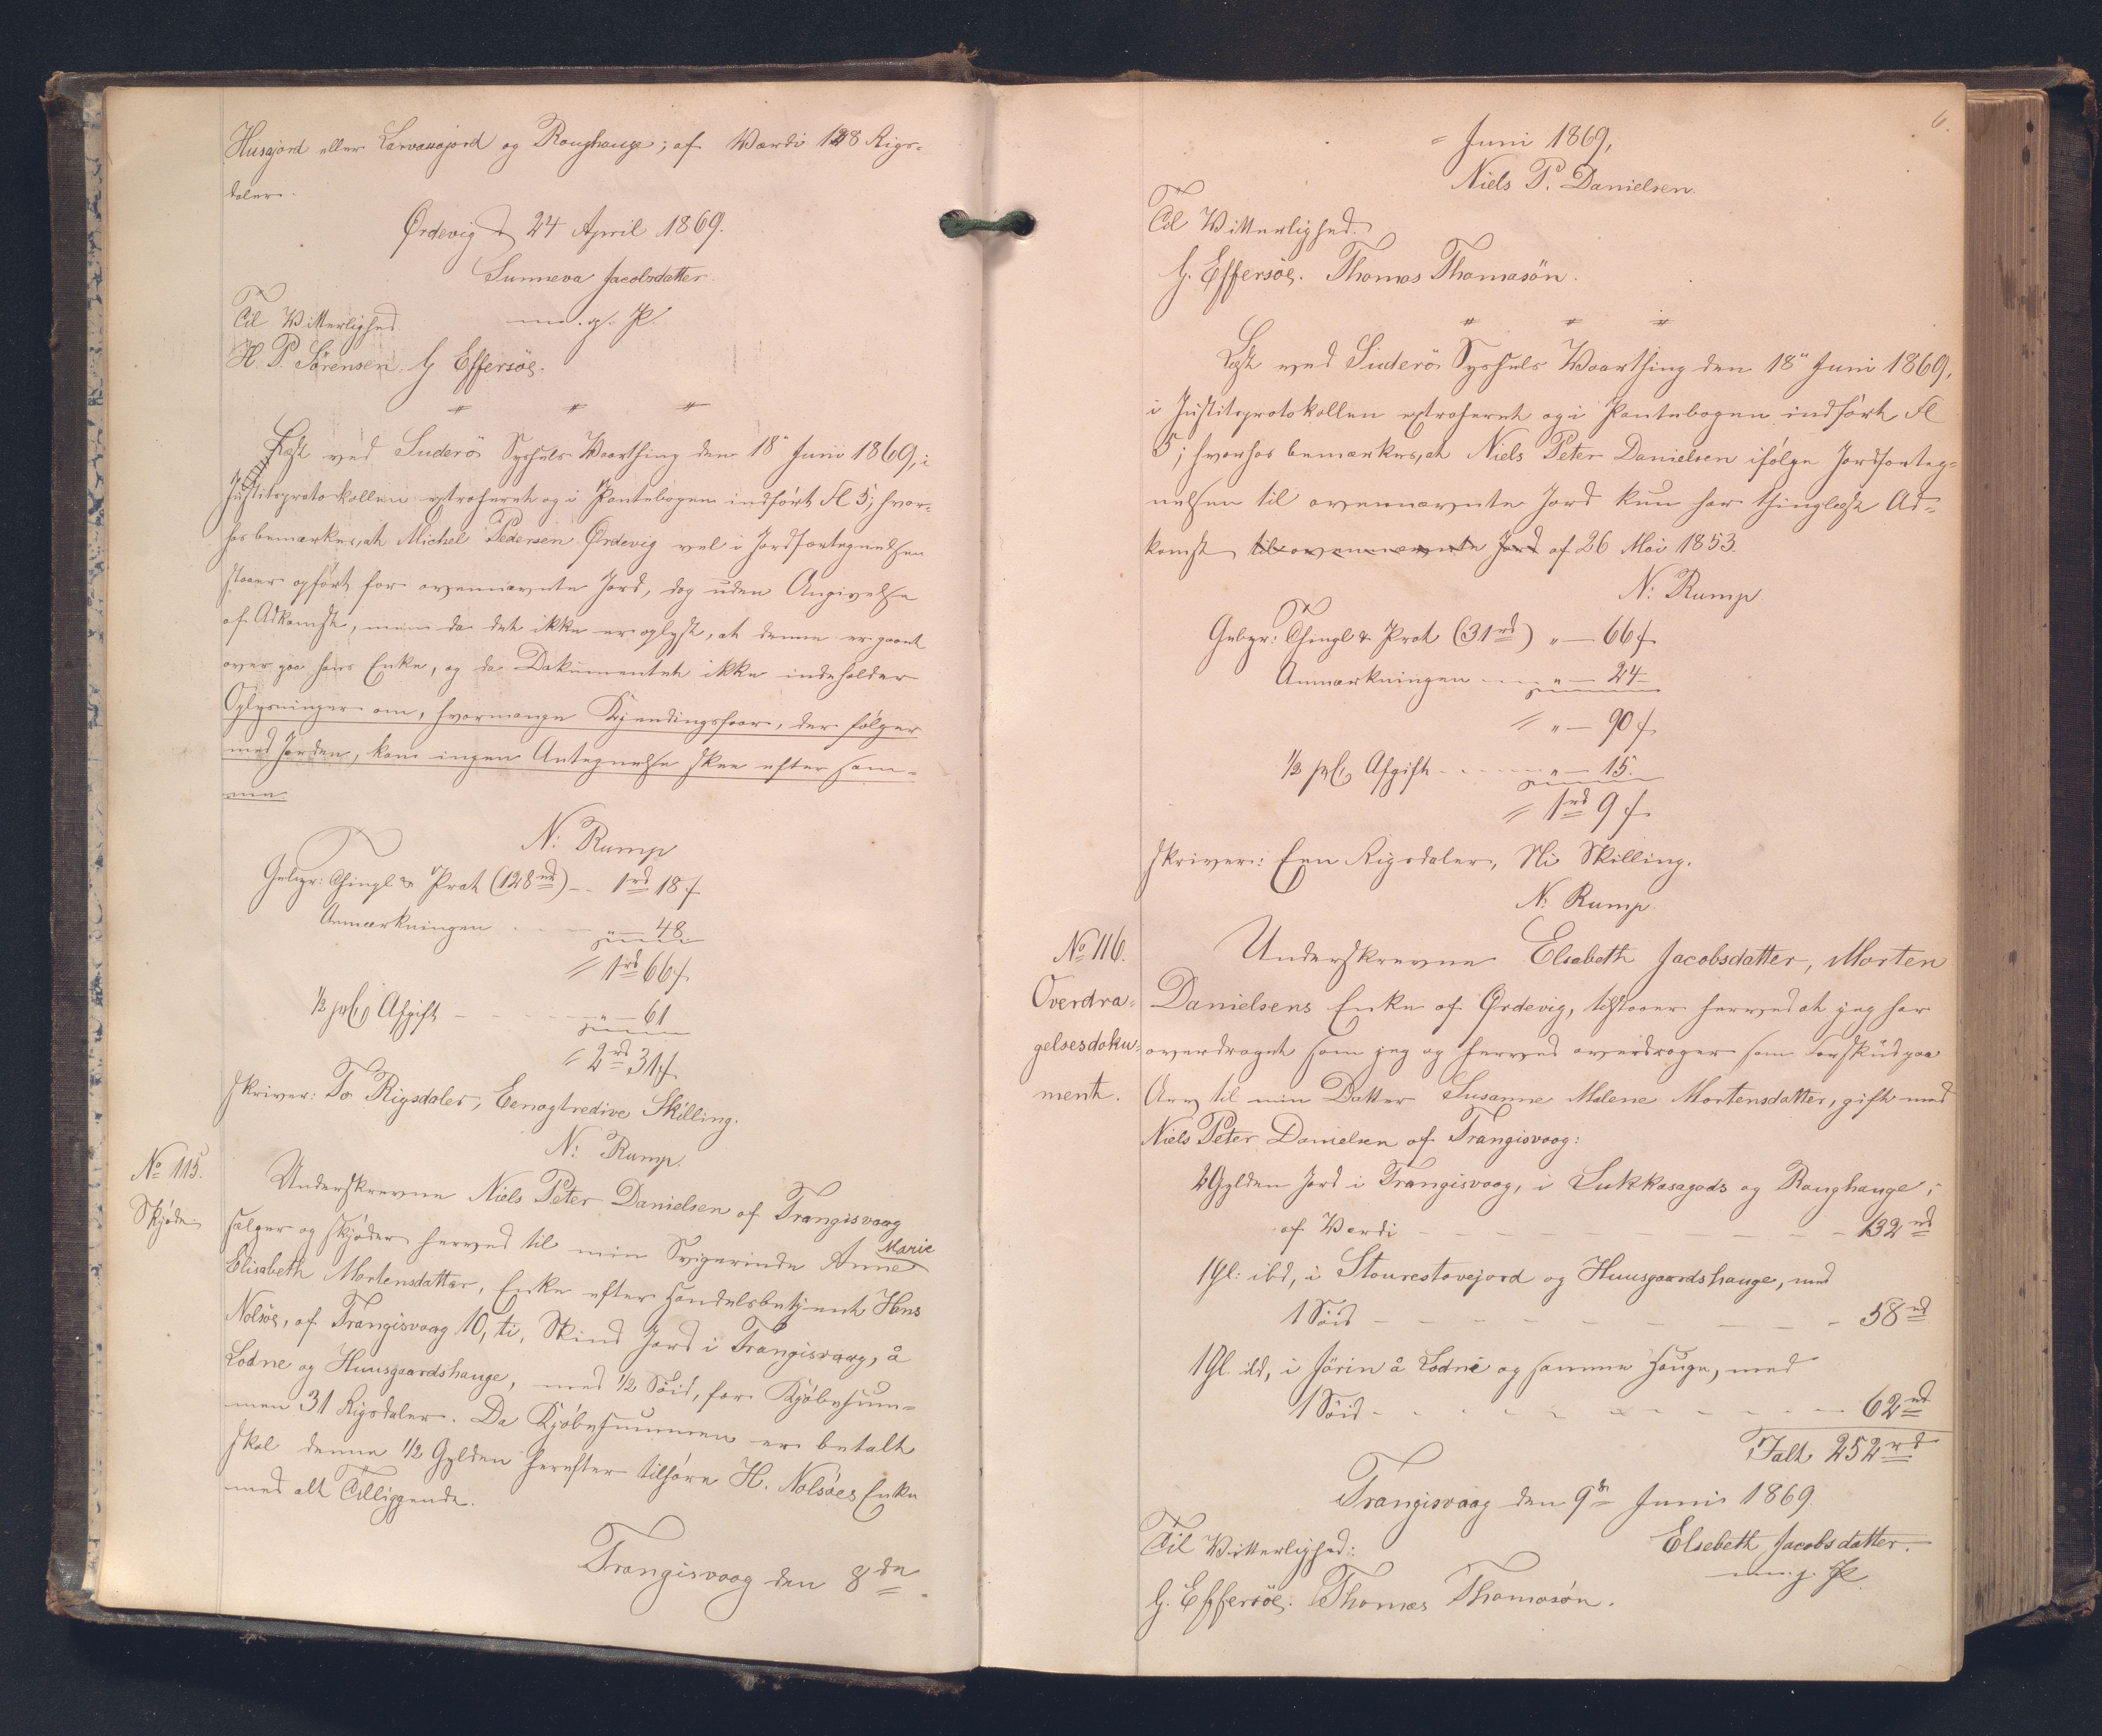 Husajord eller Larvasajord og Roughauge; af Værdi 128 Rigs-
daler.
Ørdevig d 24 April 1869.
Sunneva Jacobsdatter.
Til Vitterlighed m. g. P.
H. P. Sörensen. G Effersöe.
Læst ved Suderö Syssels Vaarthing den 18" Juni 1869, i
Justitsprotokollen extraheret og i Pantebogen indført Fl 5; hvor-
hos bemærkes, at Michel Pedersen Ørdevig vel i Jordfortegnelsen
staaer opført for ovennævnte Jord, dog uden Angivelse
af Adkomst, men da det ikke er oplyst, at denne er gaaet
over paa hans Enke, og da Dokumentet ikke indeholder
Oplysninger om, hvormange Kjendingsfaar, der følger
med Jorden, kan ingen Antegnelse skee efter sam-
me.
N: Rump
Gebyr: Thingl & Prot (128 rd) -- 1 rd 18 f
Anmærkningen " — 48
1 rd 66 f
½ pCt Afgift " — 61
2 rd 31 f
skriver: To Rigsdaler, Eenogtredive Skilling.
N: Rump.
No 115.
Skjøde
Underskrevne Niels Peter Danielsen af Trangisvaag
sælger og skjøder herved til min Svigerinde Anne Marie
Elisabeth Mortensdatter, Enke efter Handelsbetjent Hans
Nolsöe, af Trangisvaag 10, ti, Skind Jord i Trangisvaag, å
Lodne og Huusgaardshauge, med ½ Söid, for Kjøbesum-
men 31 Rigsdaler. Da Kjøbesummen er betalt
skal denne ½ Gylden herefter tilhøre H. Nolsöes Enke
med alt Tilliggende.
Trangisvaag den 8de
6.
= Juni 1869,
Niels P. Danielsen.
Til Vitterlighed.
G. Effersöe. Thomas Thomasön.
Læst ved Suderö Syssels Vaarthing den 18" Juni 1869,
i Justitsprotokollen extraheret og i Pantebogen indført Fl
5; hvorhos bemærkes, at Niels Peter Danielsen ifølge Jordforteg-
nelsen til ovennævnte Jord kun har thinglæst Ad-
komst til ovennævnte Jord af 26 Mai 1853.
N: Rump
Gebyr: Thingl & Prot (31 rd) " — 66 f
Anmærkningen " — 24
" — 90 f
½ pCt Afgift " — 15.
1 rd 9 f
skriver: Een Rigsdaler, Ni Skilling.
N: Rump.
No 116.
Overdra-
gelsesdoku-
ment.
Underskrevne Elsebeth Jacobsdatter, Morten
Danielsens Enke af Ørdevig, tilstaaer herved at jeg har
overdraget som jeg og herved overdrager som Forskud paa
Arv til min Datter Susanne Malene Mortensdatter, gift med
Niels Peter Danielsen af Trangisvaag:
2 Gylden Jord i Trangisvaag, i Lukkasagods og Roughauge,
af Værdi — 132 rd
1 Gl: ibd, i Stourestovejord og Huusgaardshauge, med
1 Söid — 58 rd
1 Gl. ibd, i Jörin å Lodne og samme Hauge, med
1 Söid — 62 rd
Ialt 252 rd
Trangisvaag den 9de Juni 1869.
Til Vitterlighed: Elsebeth Jacobsdatter.
m. g. P.
G. Effersöe. Thomas Thomasön.